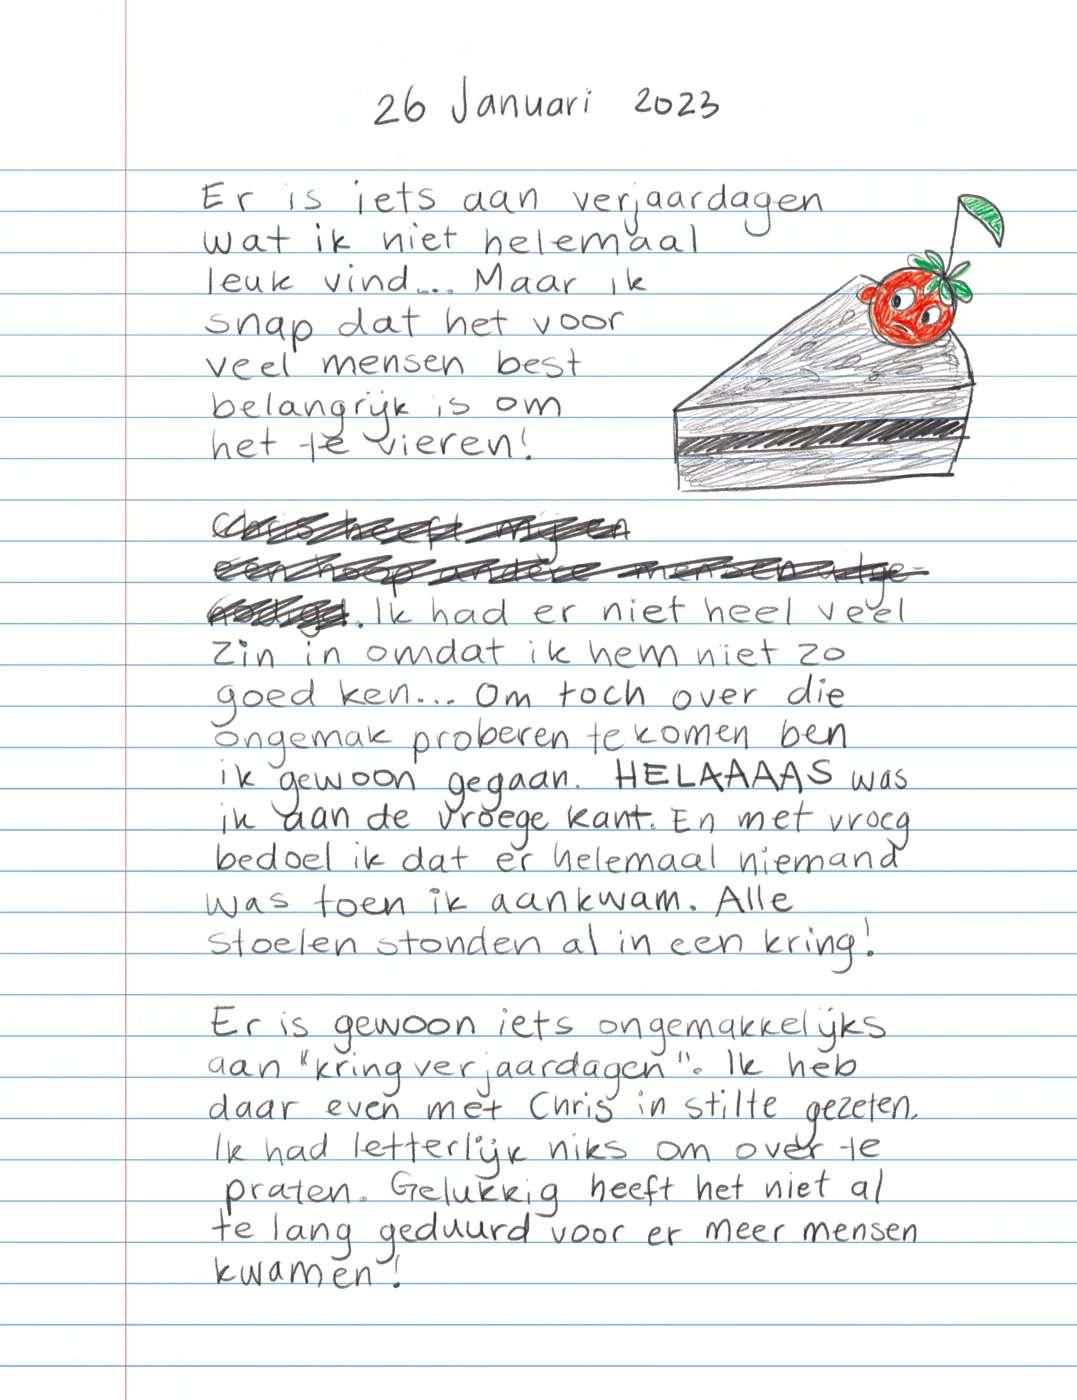 26 Januari 2023
Er is iets aan verjaardagen
wat ik niet helemaal
leuk vind.... Maar ik
snap dat het voor
veel mensen best
belangrijk is om
het te vieren!
Chris heeft mij en
een hoop andere mensen uitge-
nodigd. Ik had er niet heel veel
zin in omdat ik hem niet zo
goed ken... Om toch over die
ongemak proberen te komen ben
ik gewoon gegaan. HELAAAAS was
ik aan de vroege kant. En met vroeg
bedoel ik dat er helemaal niemand
was toen ik aankwam. Alle
stoelen stonden al in een kring!
Er is gewoon iets ongemakkelijks
aan "kringverjaardagen". Ik heb
daar even met Chris in stilte gezeten.
Ik had letterlijk niks om over te
praten. Gelukkig heeft het niet al
te lang geduurd voor er meer mensen
kwamen!